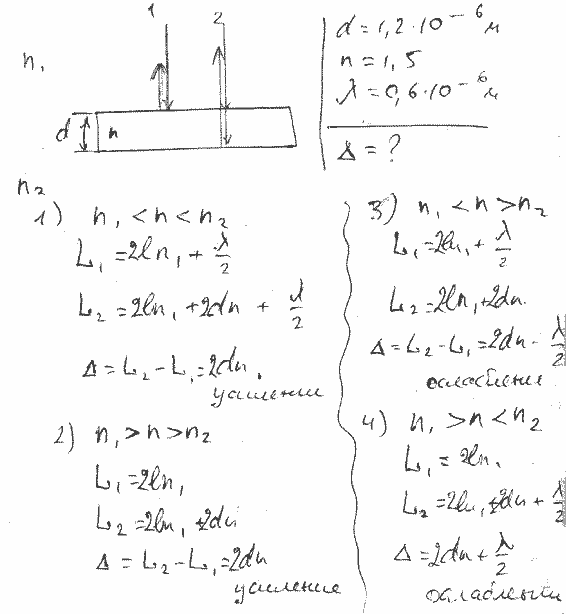 1
2
n₁
d
n
n₂
d = 1,2·10⁻⁶ м
n = 1,5
λ = 0,6·10⁻⁶ м
Δ = ?
1) n₁ < n < n₂
L₁ = 2ln₁ + λ/2
L₂ = 2ln₁ + 2dn + λ/2
Δ = L₂ - L₁ = 2dn.
усиление
2) n₁ > n > n₂
L₁ = 2ln₁
L₂ = 2ln₁ + 2dn
Δ = L₂ - L₁ = 2dn
усиление
3) n₁ < n > n₂
L₁ = 2ln₁ + λ/2
L₂ = 2ln₁ + 2dn.
Δ = L₂ - L₁ = 2dn - λ/2
ослабление
4) n₁ > n < n₂
L₁ = 2ln.
L₂ = 2ln₁ + 2dn + λ/2
Δ = 2dn + λ/2
ослабление